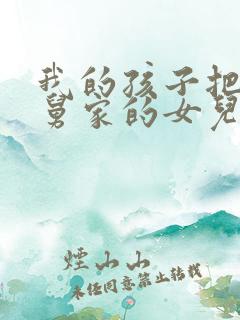 我的孩子把
舅家的女兒
煙山山
未經同意禁止轉載